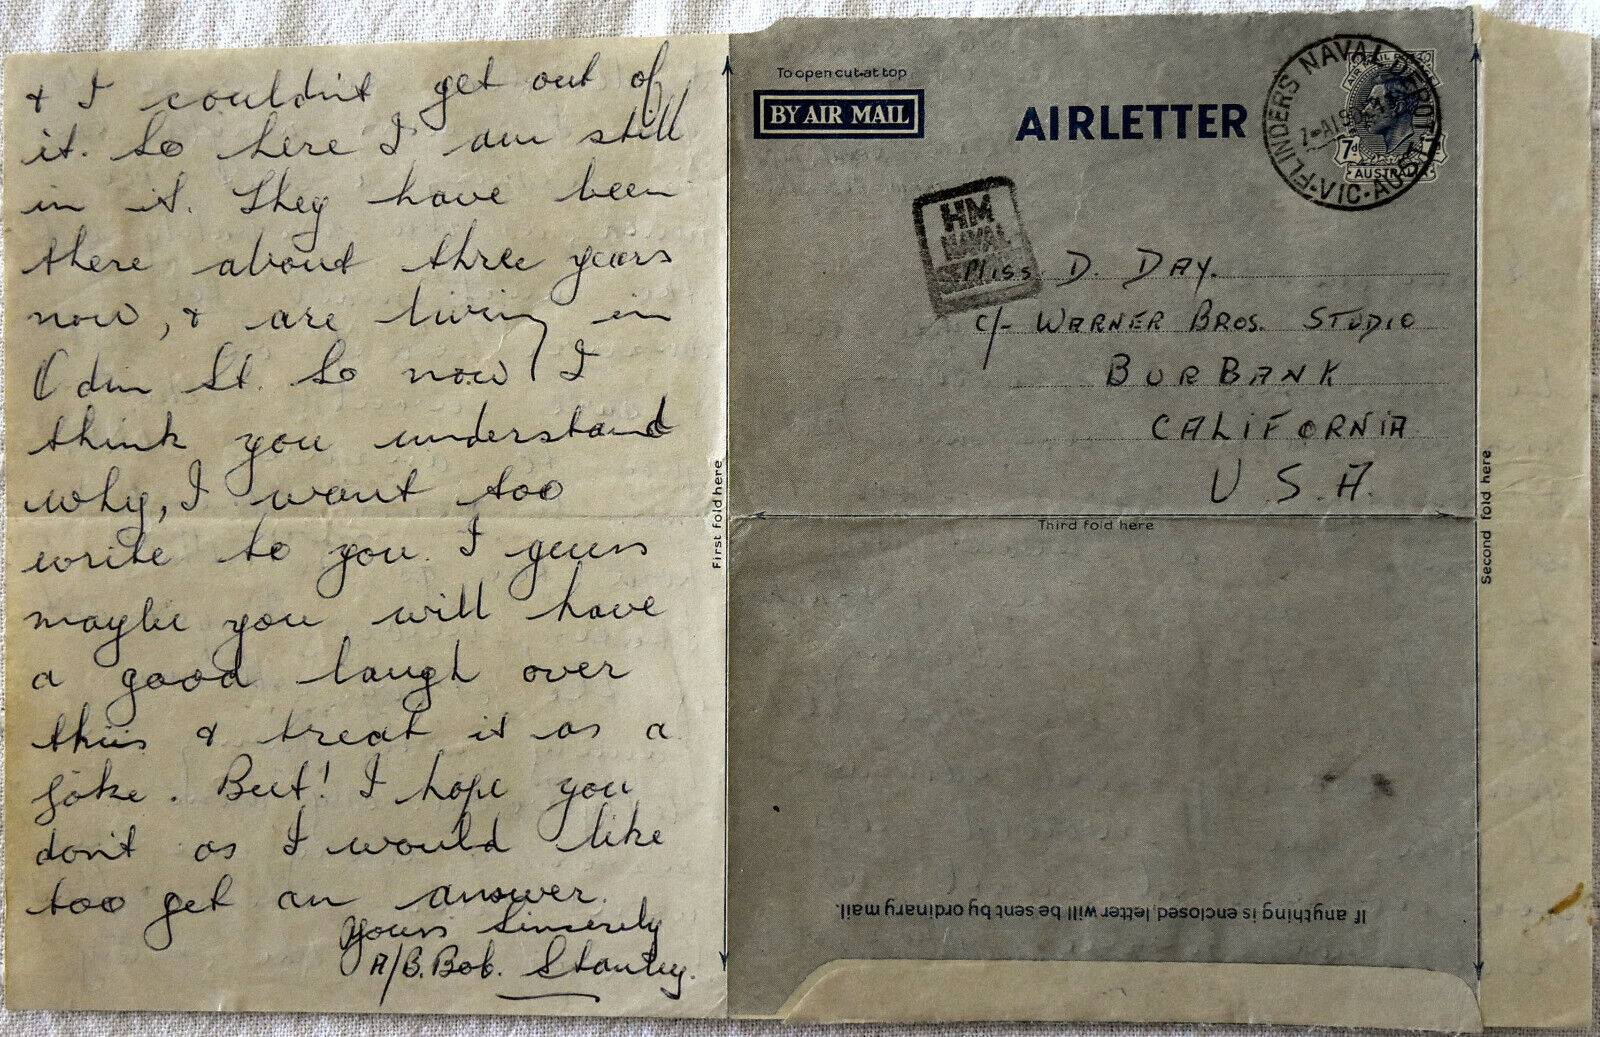 & I couldn't get out of
it. So here I am still
in it. They have been
there about three years
now, & are living in
Odin St. So now I
think you understand
why, I want too
write to you. I guess
maybe you will have
a good laugh over
this & treat it as a
joke. But! I hope you
don't as I would like
too get an answer.
Yours Sincerely
A/B. Bob. Stanley.
First fold here
To open cut at top
BY AIR MAIL
AIRLETTER
FLINDERS NAVAL DEPOT
VIC-AUST
7d
AUSTRALIA
HM
NAVAL
Miss D. DAY.
C/- WARNER BROS. STUDIO
BURBANK
CALIFORNIA
U.S.A.
Third fold here
Second fold here
If anything is enclosed, letter will be sent by ordinary mail.